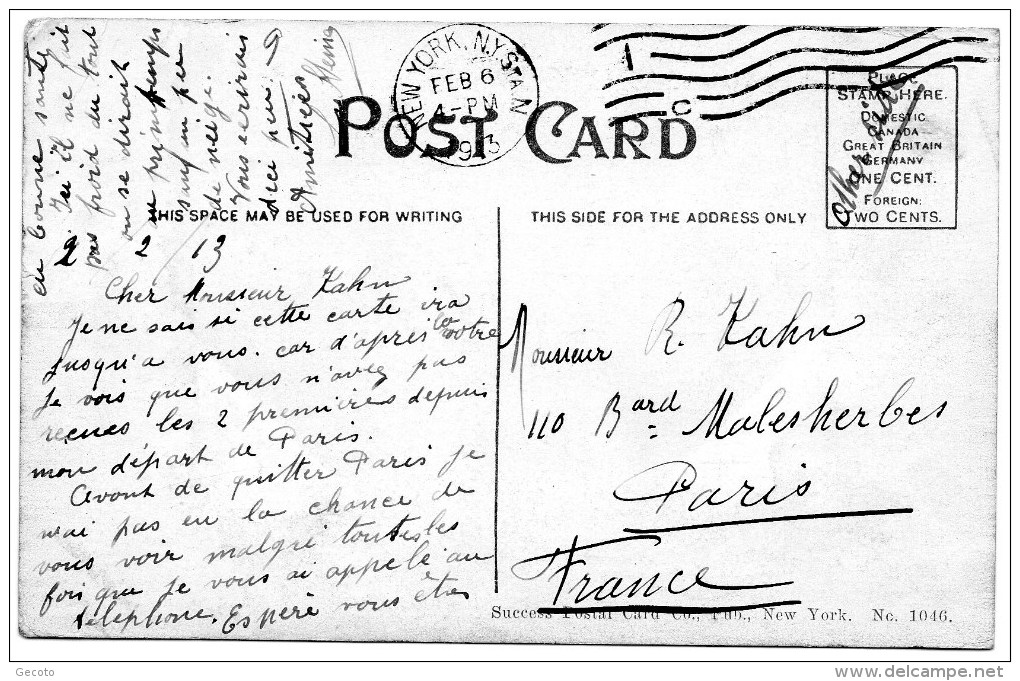 NEW YORK, N.Y. STA. N
FEB 6
4-PM
POST CARD
PLACE
STAMP HERE.
DOMESTIC
CANADA
GREAT BRITAIN
GERMANY
ONE CENT.
FOREIGN:
TWO CENTS.
THIS SPACE MAY BE USED FOR WRITING
THIS SIDE FOR THE ADDRESS ONLY
2 2 13
Cher Monsieur Kahn
Je ne sais si cette carte ira
jusqu'a vous. car d'après la votre
je vois que vous n'avez pas
reçues les 2 premières depuis
mon départ de Paris.
Avant de quitter Paris je
n'ai pas eu la chance de
vous voir malgré toutes les
fois que je vous ai appelé au
téléphone. Espère vous êtes
en bonne santé
. Ici il ne fait
pas froid du tout
on se dirait
au printemps
sauf un peu
de neige.
Vous ecrirais
d'ici peu.
Amitiées
Monsieur R. Kahn
110 Bard Malesherbes
Paris
France
Success Postal Card Co., Pub., New York. No. 1046.
Gecoto
www.delcampe.net